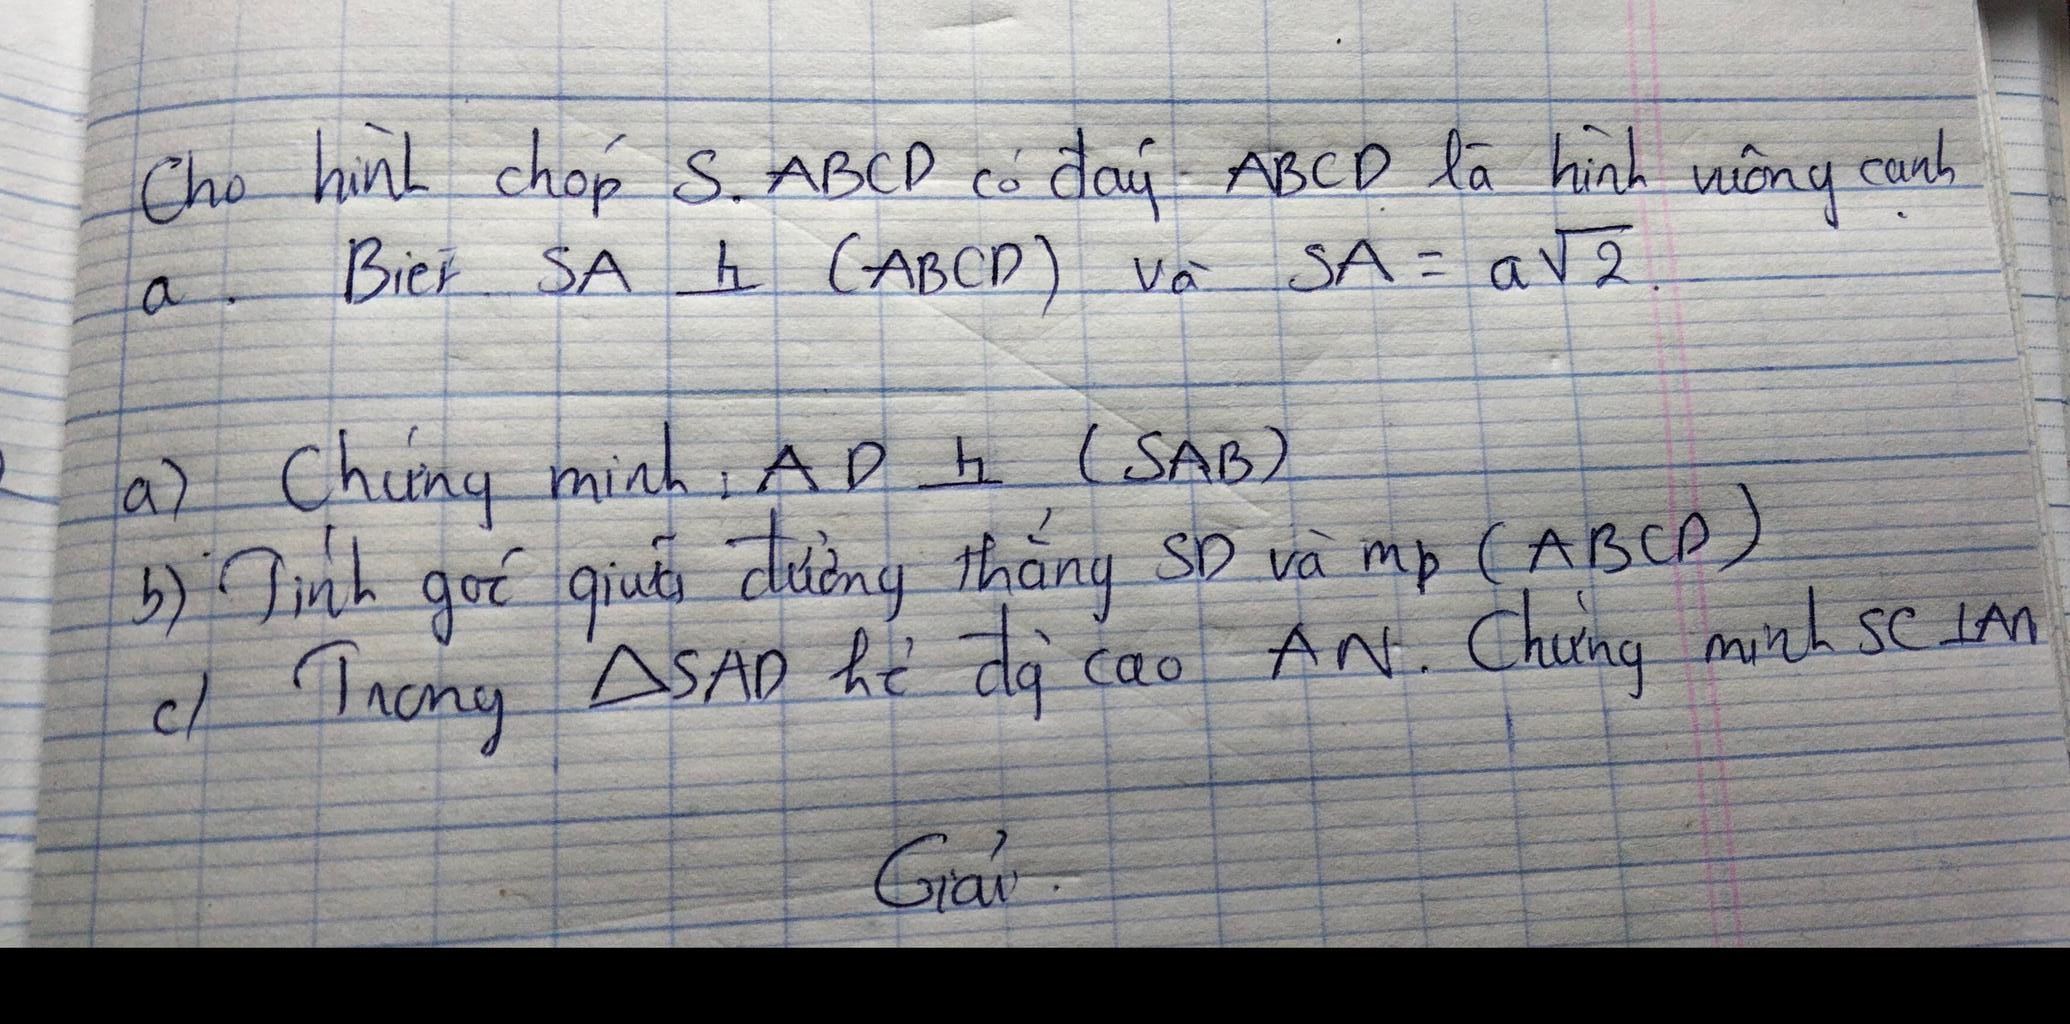 Cho hình chóp S.ABCD có đáy ABCD là hình vuông cạnh
a. Biết SA ⊥ (ABCD) và SA = a√2.
a) Chứng minh: AD ⊥ (SAB)
b) Tính góc giữa đường thẳng SD và mp (ABCD)
c) Trong ΔSAD kẻ đg cao AN. Chứng minh SC ⊥ AN
Giải.